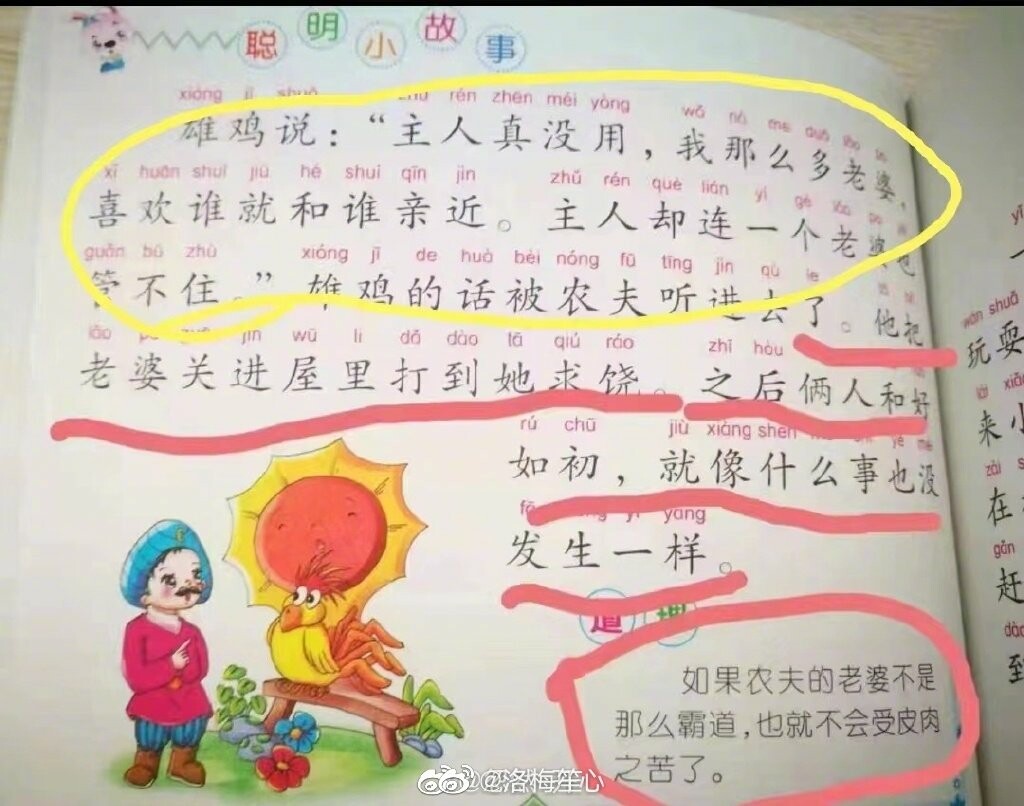 聪明小故事
xióng jī shuō zhǔ rén zhēn méi yòng wǒ nà me duō lǎo pó
雄鸡说：“主人真没用，我那么多老婆，
xǐ huān shuí jiù hé shuí qīn jìn zhǔ rén què lián yí gè lǎo pó
喜欢谁就和谁亲近。主人却连一个老婆也
guǎn bú zhù xióng jī de huà bèi nóng fū tīng jìn qù le
管不住。”雄鸡的话被农夫听进去了。他把
lǎo pó guān jìn wū li dǎ dào tā qiú ráo zhī hòu
老婆关进屋里打到她求饶。之后俩人和好
rú chū jiù xiàng shén me shì yě méi
如初，就像什么事也没
fā shēng yí yàng
发生一样。
道理
如果农夫的老婆不是
那么霸道，也就不会受皮肉
之苦了。
wán shuǎ
玩耍
来小
zài
在
gǎn
赶
dào
到
@洛梅笙心